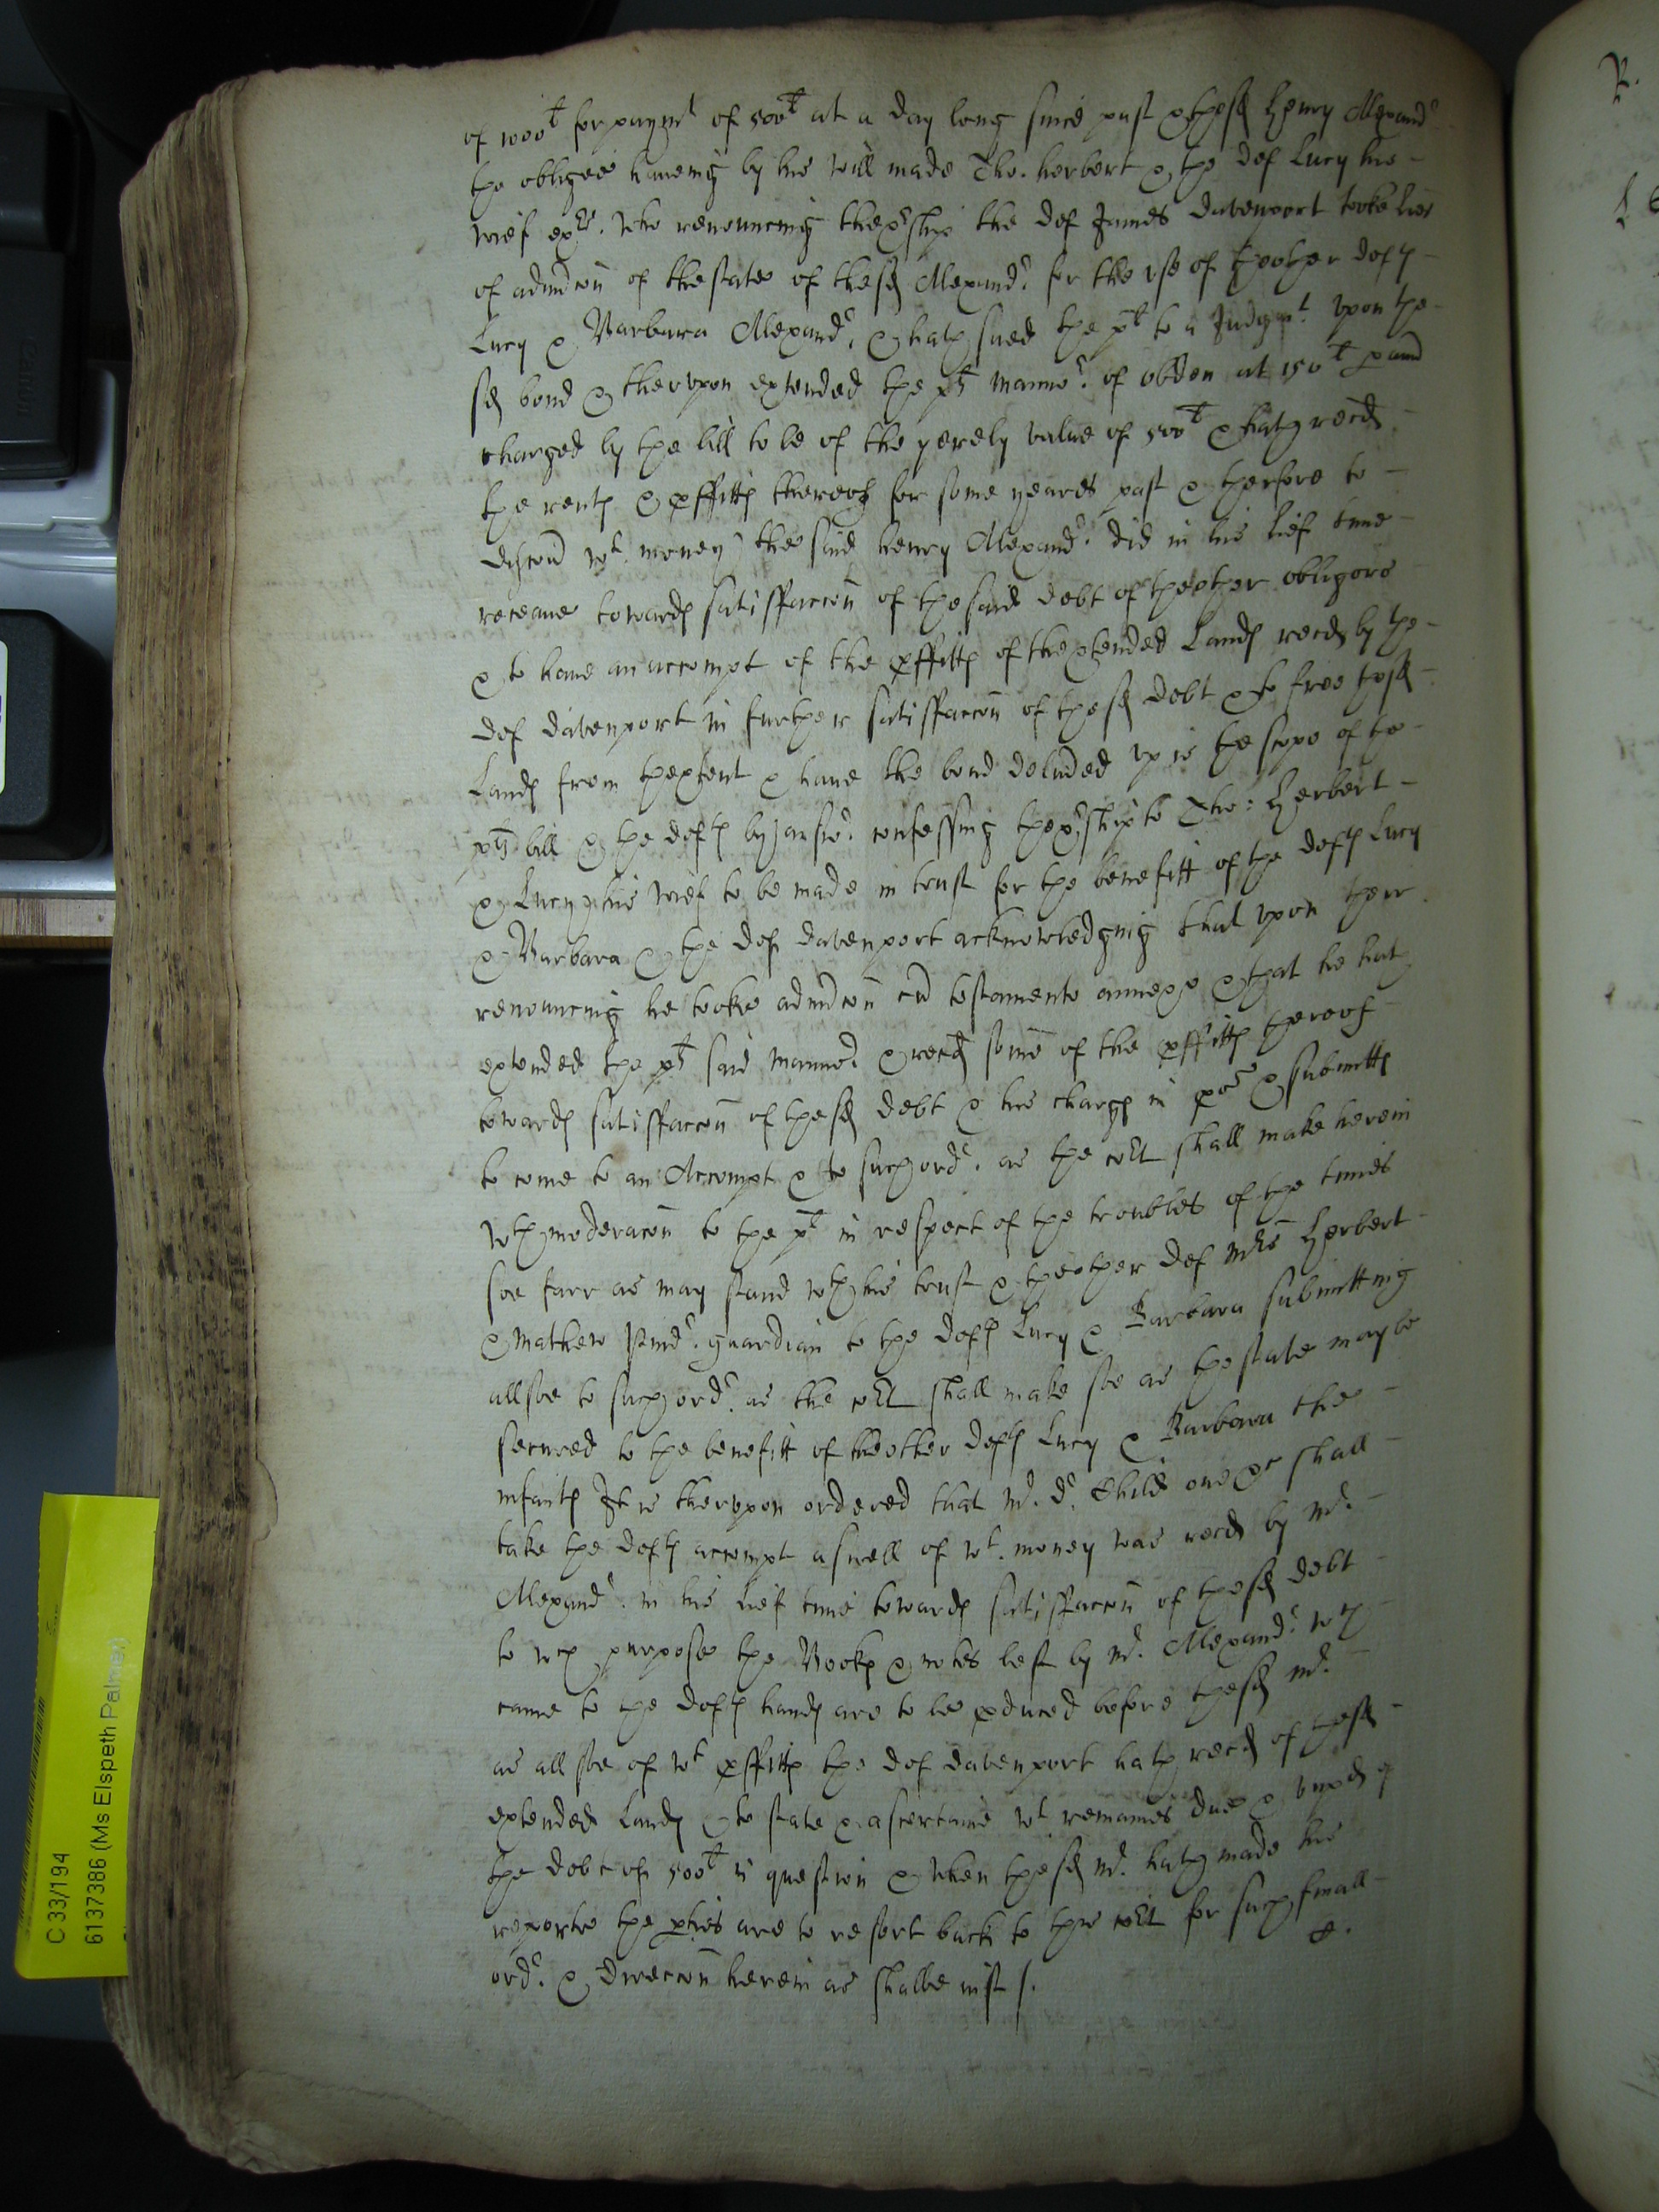 of 1000li for paymt of 500li at a day long since past & the sd Henry Alexandr
the obligee haveing by his will made Tho. Herbert & the def Lucy his
wief exrs. who renouncing thexrship the def James Davenport tooke lres
of admcon of thestate of the sd Alexandr. for the use of thother defts
Lucy & Barbara Alexandr. & hath sued the plt to a Judgmt. upon the
sd bond & therupon extended the plts mannor. of at 150li p ann
charged by the bill to be of the yerely value of 500li & hath recd
the rents & pffitts thereof for some yeares past & therfore to
discour wt. money the said Henry Alexandr. did in his lief time
receave towards satisfaccon of the said debt of theother obligors
& to have an accompt of the pffitts of thextended Lands recd by the
def Davenport in further satisfaccon of the sd debt & to free the sd
Lands from thextent & have the bond delivded up is the scope of the
plts bill & the defts by answr. confessing thexrship to Tho: Herbert
& Lucy his wief to be made in trust for the benefitt of the defts Lucy
& Barbara & the def Davenport acknowledging that upon their
renouncing he tooke admcon cu testamento annexo & that he hath
extended the plts said mannor. & recd some of the pffitts thereof
towards satisfaccon of the sd debt & his charges in pte & submitts
to come to an Accompt & to such ordr. as the cort shall make herein
wth moderacon to the plt in respect of the troubles of the times
soe farr as may stand wth his trust & theother def Mrs Herbert
& Mathew Pindr. guardian to the defts Lucy & Barbara submitting
allsoe to such ordr. as the cort shall make soe as thestate maybe
secured to the benefitt of theother defts Lucy & Barbara the
infants It is therupon ordered that Mr. Dr. Child one &c shall
take the defts accompt aswell of wt. money was recd by Mr.
Alexandr. in his lief time towards satisfaccon of the sd debt
to wch purpose the Bookes & notes left by Mr. Alexandr. wch
came to the defts hands are to be pduced before the sd Mr.
as allsoe of wt pffitts the def Davenport hath recd of the sd
extended Lands & to state & ascertaine wt remaines due & unpd of
the debt of 500li in question & when the sd Mr. hath made his
reporte the pties are to resort back to this cort for such finall
ordr. & direccon herein as shalbe iust /.
C 33/194
6137386 (Ms Elspeth Palmer)
Canon